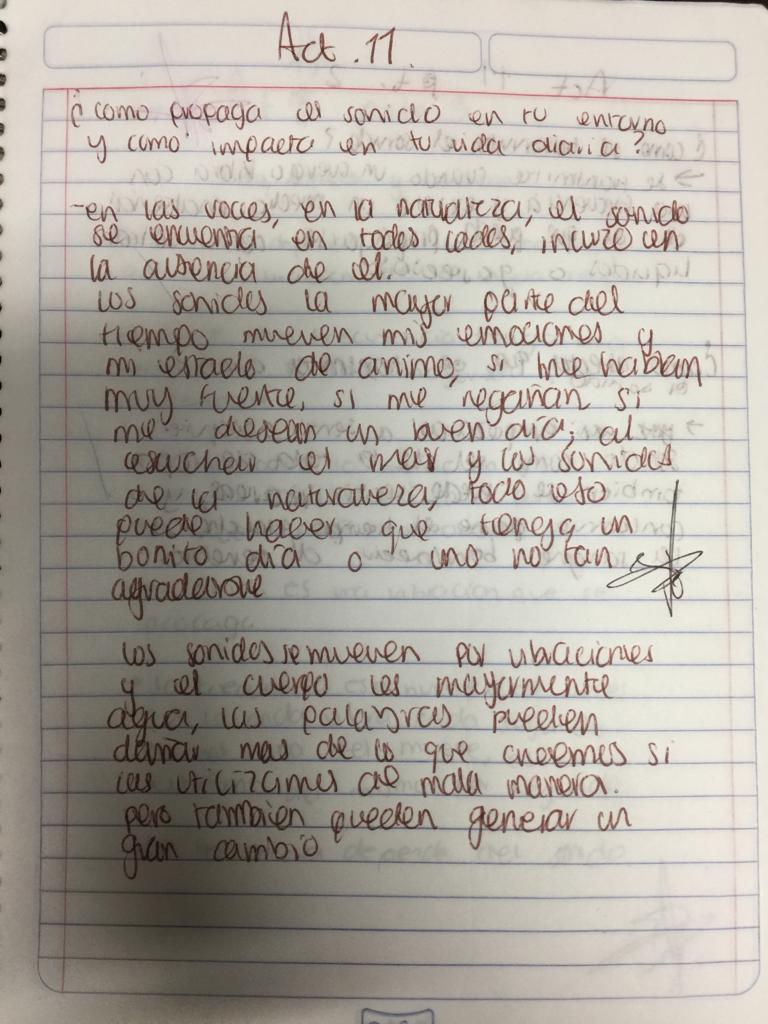 Act. 11.
¿como propaga el sonido en tu entorno
y como impacta en tu vida diaria?
-en las voces, en la naturaleza, el sonido
se encuentra en todos lados, incluzo en
la ausencia de el.
los sonidos la mayor parte del
tiempo mueven mis emociones y
mi estado de animo, si me hablan
muy fuerte, si me regañan si
me desean un buen día, al
escuchar el mar y los sonidos
de la naturaleza, todo eso
puede haber que tenga un
bonito día o uno no tan
los sonidos se mueven por vibraciones
y el cuerpo es mayormente
agua, las palabras pueden
dañar mas de lo que creemos si
las utilizamos de mala manera.
pero tambien pueden generar un
gran cambio